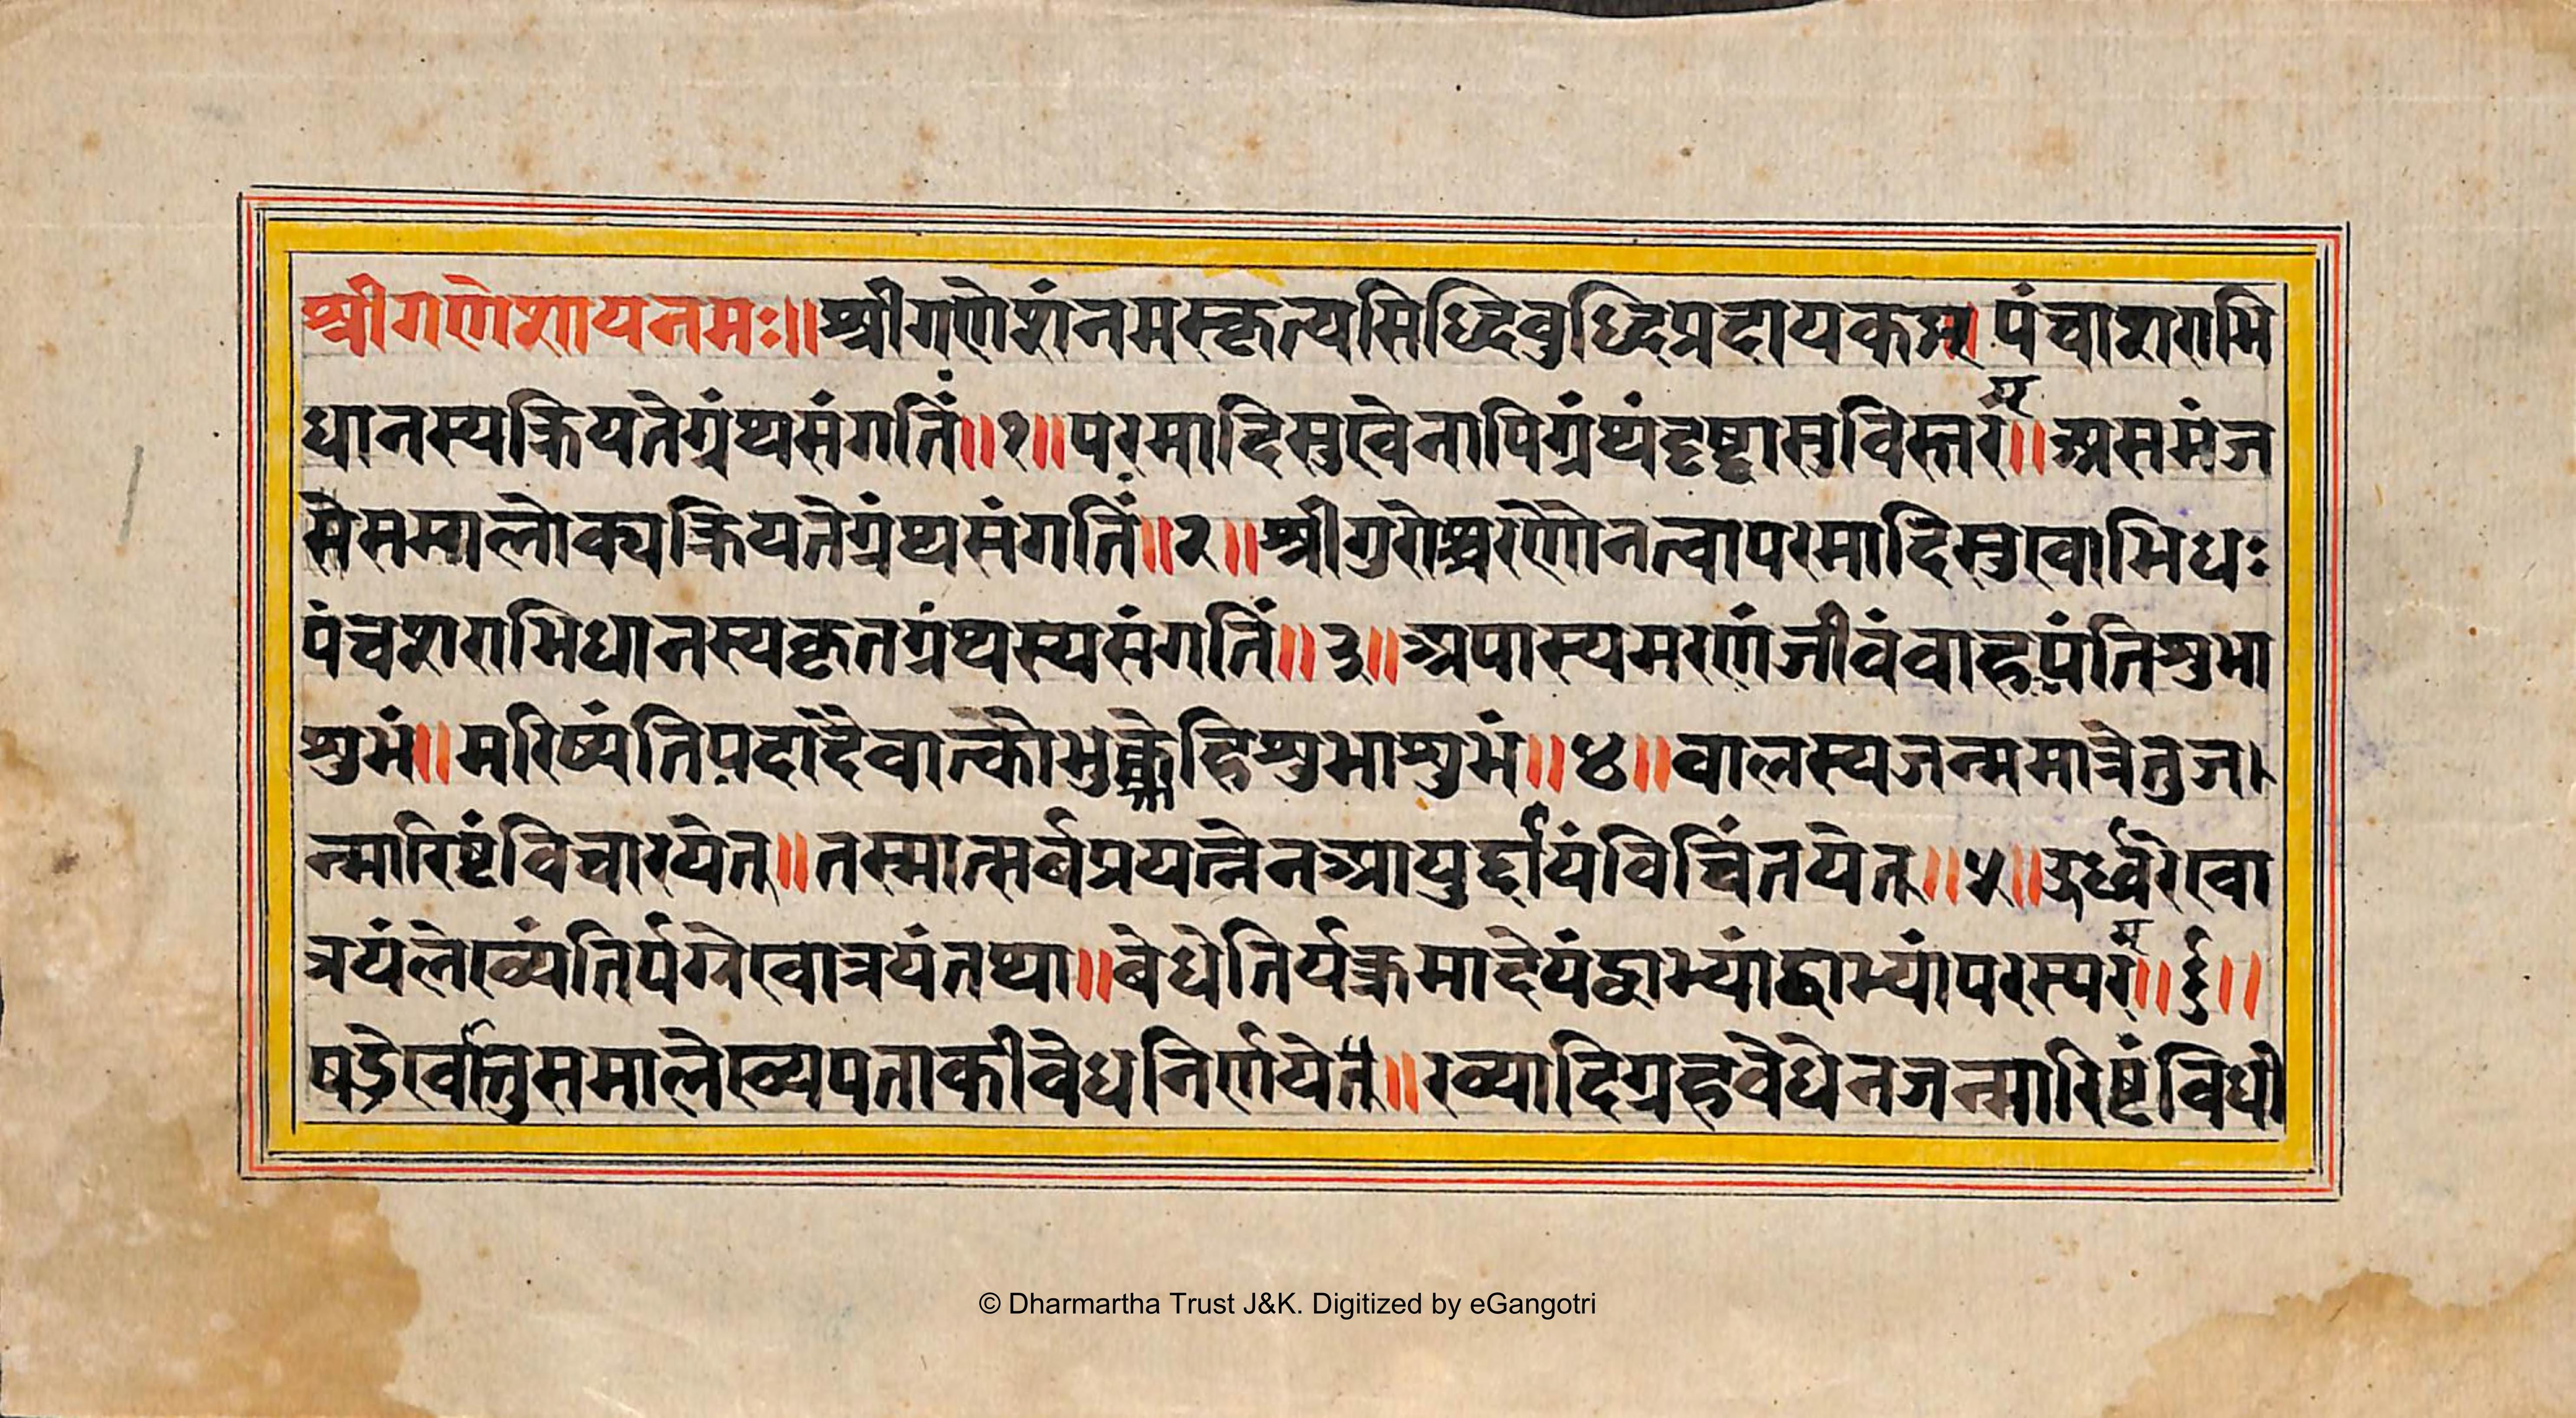 श्रीगणेशायनमः॥श्रीगणेशंनमस्कृत्यसिध्दिवुध्दिप्रदायकम्। पंचाशराभि
धानस्यक्रियतेग्रंथ्यसंगतिं॥१॥परमादिसुखेनापिग्रंथ्यंदृष्ट्वासुविस्तरं॥असमंज
सेसमालोक्यक्रियतेग्रंथ्यसंगतिं॥२॥श्रीगुरोश्चरणेोनत्वापरमादिसुखाभिधः
पंचशराभिधानस्यकृतग्रंथ्यस्यसंगतिं॥३॥अपास्यमरणंजीवंवाह्रपंतिशुभा
शुभं॥मरिष्यंतिपदादैवात्कोभुक्तेहिशुभाशुभं॥४॥वालस्यजन्ममात्रेतुज।
न्मारिष्टंविचारयेत्॥तस्मात्सर्बप्रयत्नेनआयुर्द्दायंविचिंतयेत्॥५॥उर्ध्वरेखा
त्रयंलेख्यंतिर्यग्रेखात्रयंतथ्या॥बेधेतिर्यक्रमादेयंद्वाभ्यांद्वाभ्यांपरस्परं॥६॥
षड्रेर्खास्तुसमालेख्यपताकीवेधनिर्णयेत्॥रव्यादिग्रहवेधेनजन्मारिष्टंविधी
© Dharmartha Trust J&K. Digitized by eGangotri